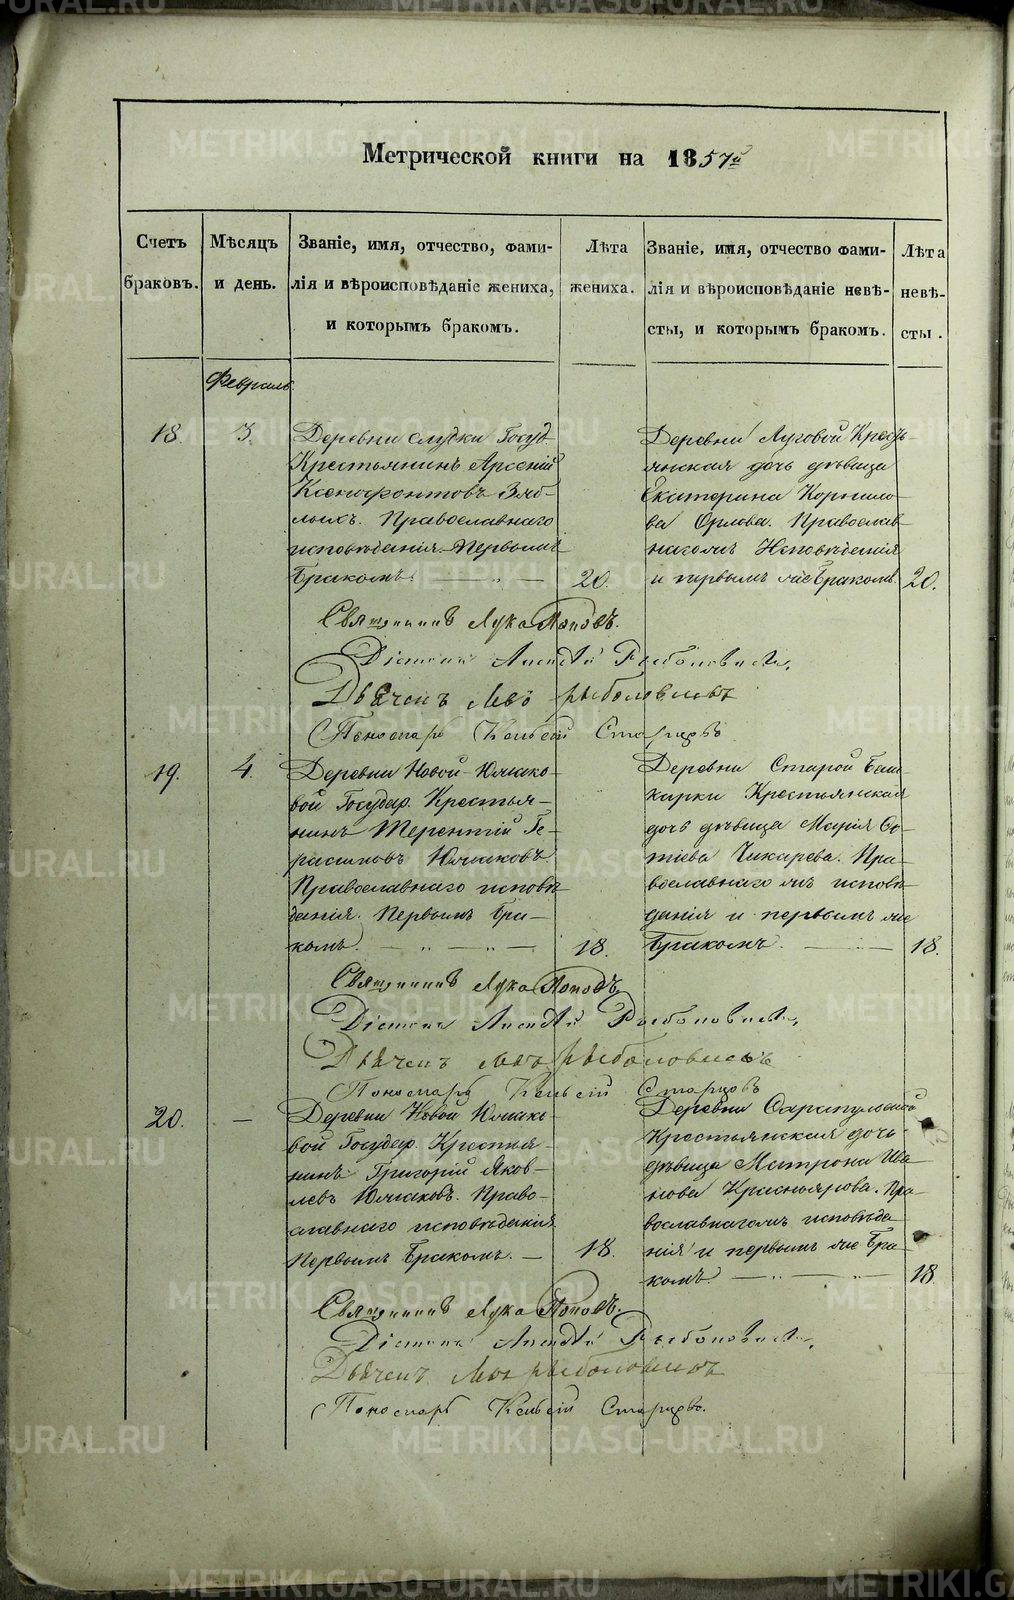 Метрической книги на 1857й
Счетъ браковъ.
Мѣсяцъ и день.
Званіе, имя, отчество, фами-
лія и вѣроисповѣданіе жениха,
и которымъ бракомъ.
Лѣта жениха.
Званіе, имя, отчество фами-
лія и вѣроисповѣданіе невѣ-
сты, и которымъ бракомъ.
Лѣта невѣ-
сты.
Февраль
18. 3.
Деревни Слудки Госуд.
Крестьянинъ Арсеній
Ксенофонтовъ Зяб-
лыхъ. Православнаго
исповѣданія Первымъ
Бракомъ.
20.
Деревни Луговой Кресть-
янская дочь дѣвица
Екатерина Корнило-
ва Орлова. Православ-
нагожъ Исповѣданія
и первымъ же Бракомъ.
20.
Священникъ Лука Поповъ.
Діаконъ Рыболовлевъ.
Дьячекъ Левъ Рыболовлевъ
Пономарь Старцовъ
19. 4.
Деревни Новой-Юмако-
вой Государ. Крестья-
нинъ Терентій Ге-
расимовъ Юмаковъ.
Православнаго исповѣ-
данія. Первымъ Бра-
комъ.
18.
Деревни Старой Баш-
карки Крестьянская
дочь дѣвица Марія Фо-
тіева Чикарева. Пра-
вославнаго жъ исповѣ-
данія и первымъ же
Бракомъ.
18.
Священникъ Лука Поповъ.
Діаконъ Рыболовлевъ.
Дьячекъ Левъ Рыболовлевъ
Пономарь Старцовъ
20. —
Деревни Новой Юмако-
вой Государ. Крестья-
нинъ Григорій Яков-
левъ Юмаковъ. Право-
славнаго исповѣданія
Первымъ Бракомъ.
18.
Деревни Сарапулской
Крестьянская дочь
дѣвица Матрона Ива-
нова Красноярова. Пра-
вославнагожъ исповѣда-
нія и первымъ же Бра-
комъ
18
Священникъ Лука Поповъ.
Діаконъ Рыболовлевъ.
Дьячекъ Левъ Рыболовлевъ
Пономарь Старцовъ.
METRIKI.GASO-URAL.RU